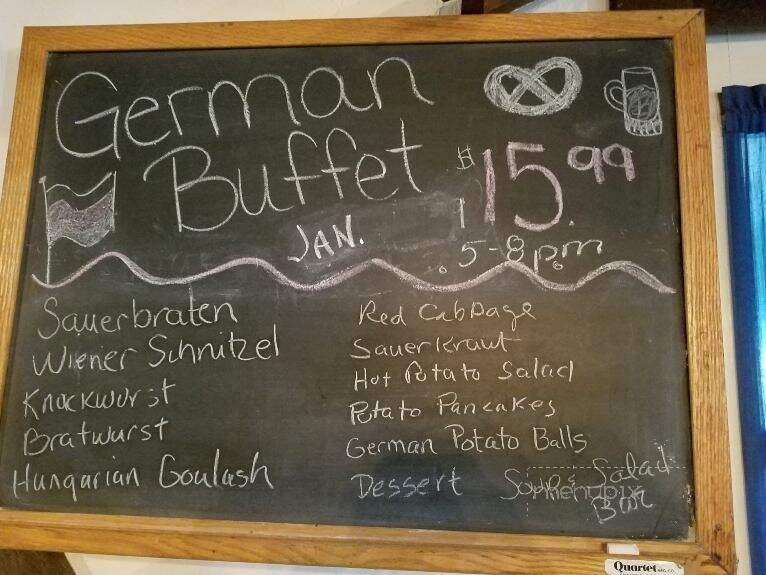 German
Buffet
$15.99
JAN.
5-8pm
Sauerbraten
Wiener Schnitzel
Knockwurst
Bratwurst
Hungarian Goulash
Red Cabbage
Sauerkraut
Hot Potato Salad
Potato Pancakes
German Potato Balls
Dessert
Soup & Salad
Bar
menupix
Quartet